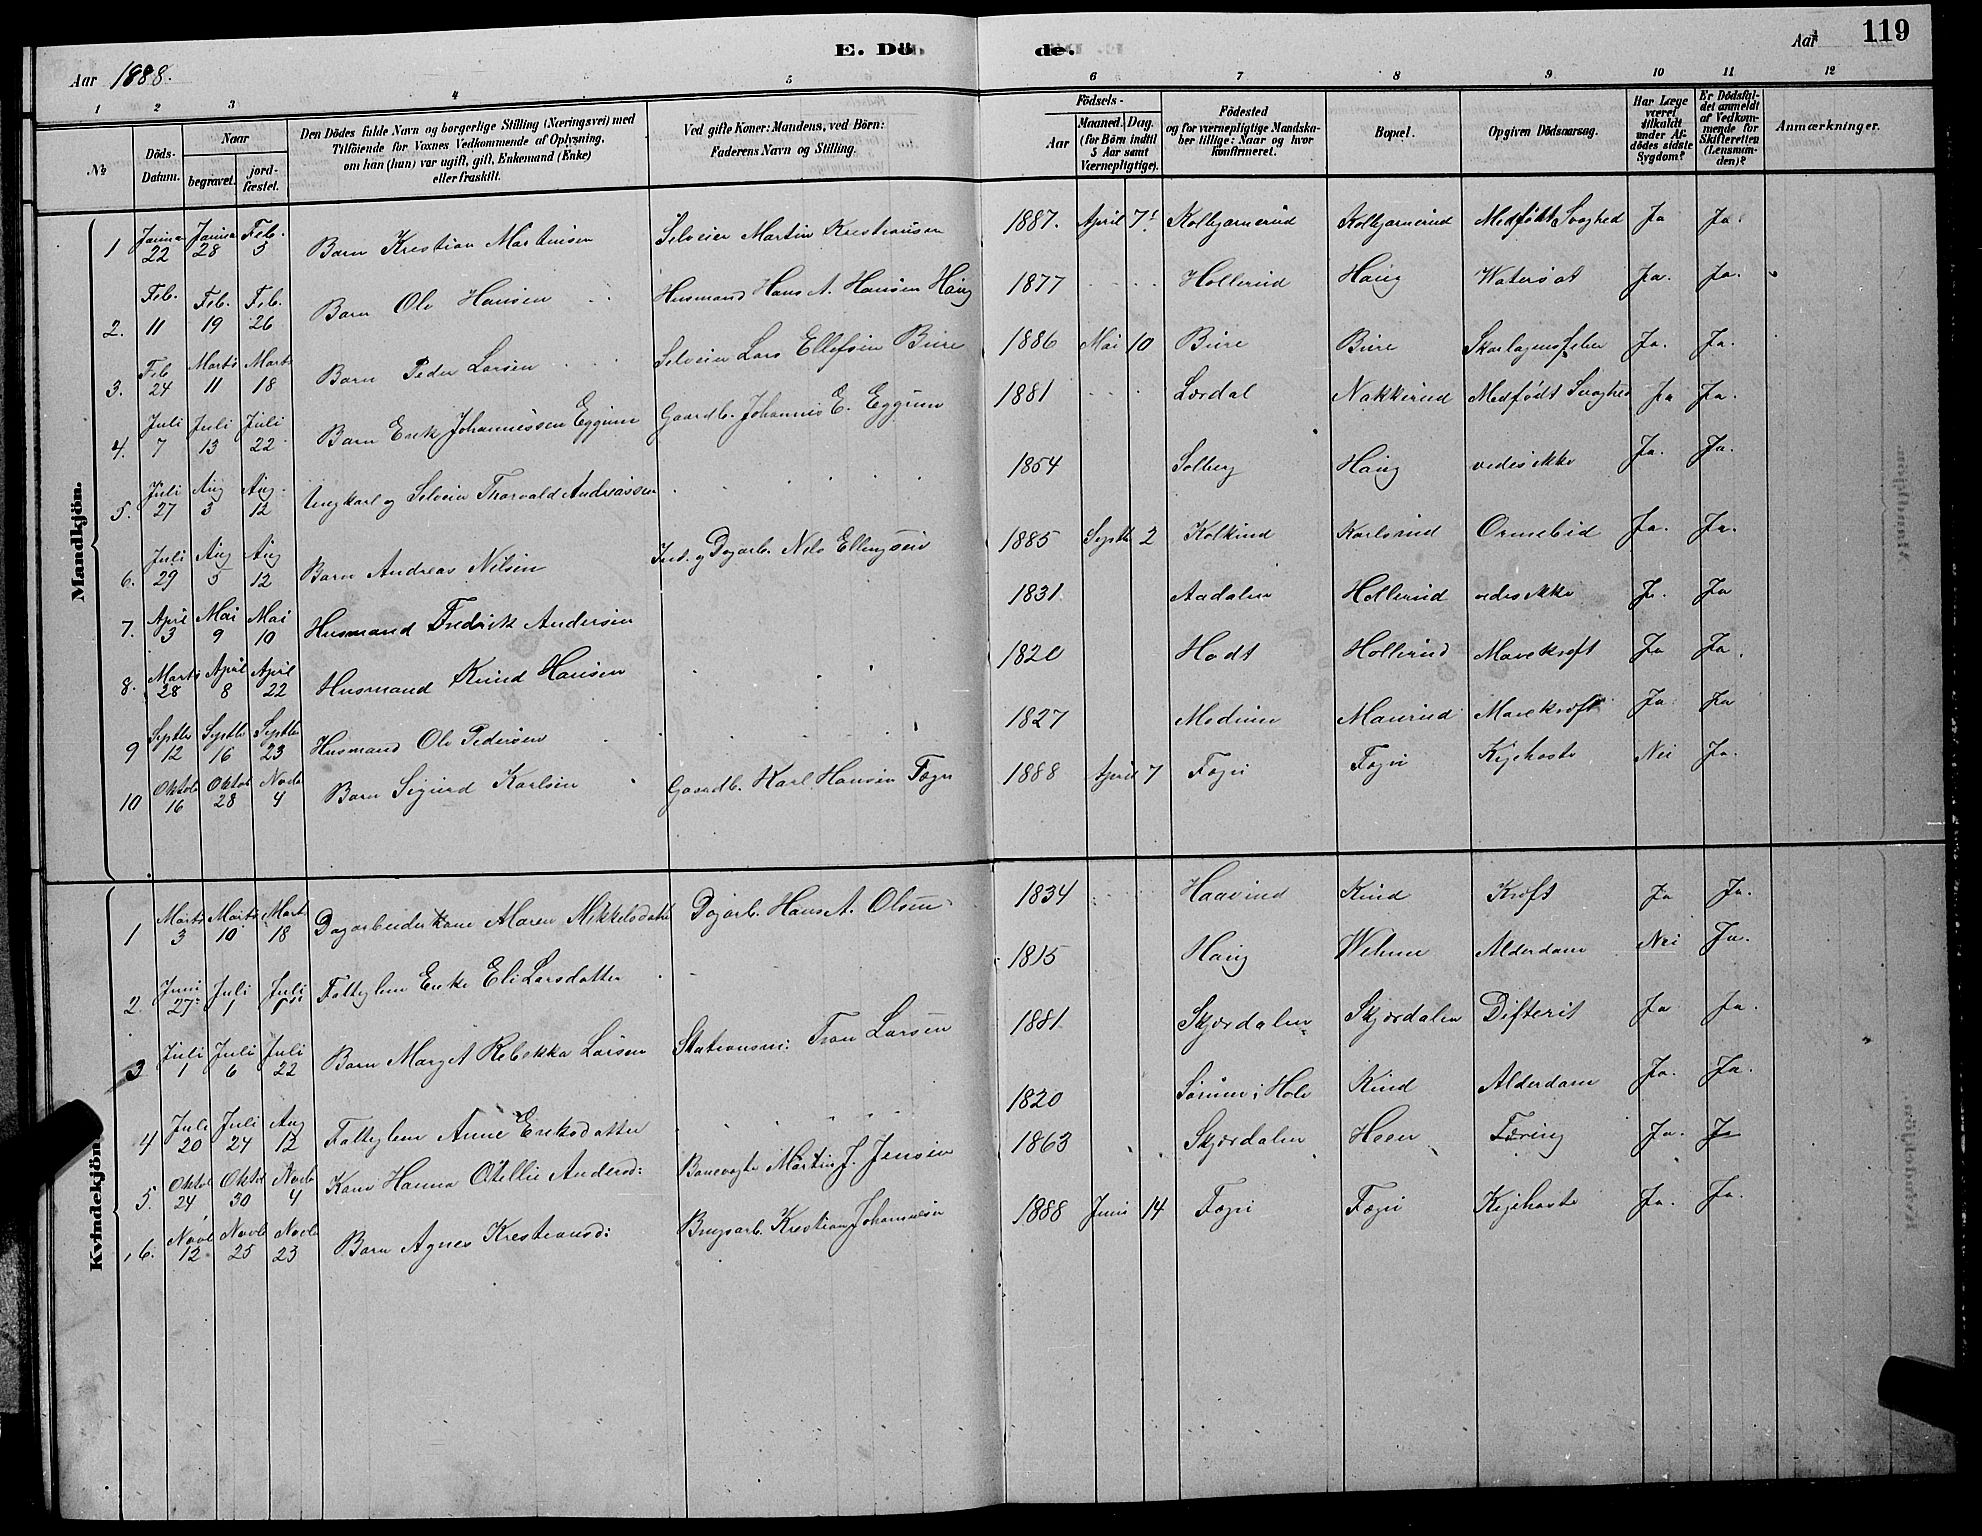 E. Dö de.
Aar 1888. Aar 119
1 2 3 4 5 6 7 8 9 10 11 12
№ Döds-Datum. Naar begravet. jord-fæstet. Den Dödes fulde Navn og borgerlige Stilling (Næringsvei) med Tilföiende for Voxnes Vedkommende af Oplysning, om han (hun) var ugift, gift, Enkemand (Enke) eller fraskilt. Ved gifte Koner: Mandens, ved Börn: Faderens Navn og Stilling. Födsels- Aar Maaned. Dag. (for Börn indtil 5 Aar samt Værnepligtige). Födested og for værnepligtige Mandskaber tillige: Naar og hvor konfirmeret. Bopæl. Opgiven Dödsaarsag. Har Læge været tilkaldt under Afdödes sidste Sygdom? Er Dödsfaldet anmeldt af Vedkommende for Skifteretten (Lensmanden)? Anmærkninger.
Mandkjön.
1 Janua 22 Janua 28 Feb. 5 Barn Kristian Martinsen Selveier Martin Kristiansen 1887. April 7 Kolbjørnerud Kolbjørnerud Medfødt Svaghed Ja Ja
2. Feb. 11 Feb. 19 Feb. 26 Barn Ole Hansen Husmand Hans A. Hansen Haug 1877 Hollerud Haug Watersot Ja. Ja.
3. Feb 24 Marts 11 Marts 18 Barn Peder Larsen Selveier Lars Ellefsen Bure 1886 Mai 10 Bure Bure Skarlagensfeber Ja. Ja.
4. Juli 7 Juli 13 Juli 22 Barn Erik Johannessen Eggum Gaardb. Johannes E. Eggum 1881 Lærdal Nakkerud Medfødt Svaghed Ja Ja.
5. Juli 27 Aug 3 Aug. 12 Ungkarl og Selveier Thorvald Andreassen 1854 Solberg Haug vedes ikke Ja. Ja.
6. Juli 29 Aug 5 Aug 12 Barn Andreas Nilsen Ind. og Dagarb. Nils Ellingsen 1885 Septb 2 Karlsrud Ormebid Ja. Ja.
7. April 3 Mai 9 Mai 10 Husmand Fredrik Andersen 1831. Aadalen Hollerud vedes ikke Ja. Ja
8. Marts 28 April 8 April 22 Husmand Knud Hansen Hollerud Mavekræft Ja Ja.
9 Septbr 12 Septbr 16 Septbr 23 Husmand Ole Pedersen 1827 Modum Maurud Mavekræft Ja Ja
10 Oktob 16 Oktob 28 Novb 4 Barn Sigurd Karlsen Gaardb. Karl Hansen Fægri 1888 April 7 Fægri Fægri Kighoste Nei Ja.
Kvindekjön.
1 Marts 3 Marts 10 Marts 18 Dagarbeiderkone Maren Mikkelsdatter Dagarb. Hans A. Olsen 1834 Haavrud Rud Kræft Ja Ja.
2. Juni 27 Juli 1 Juli 1 Fattiglem Enke Eli Larsdatter 1815 Haug Alderdom Nei Ja.
3 Juli 1 Juli 6 Juli 22 Barn Marget Rebekka Larsen Stationsm: Tron Larsen 1881. Skjærdalen Skjærdalen Difterit Ja Ja.
4 Juli 20 Juli 24 Aug 12 Fattiglem Anne Eriksdatter 1820 Sørum i Hole Rud Alderdom Ja. Ja.
5. Oktob 24 Oktob 30 Novb 4 Kone Hanna Otellie Andersd: Banevogter Martin J. Jensen 1863 Skjærdalen Heen Tæring Ja. Ja
6. Novb 12 Novb 25 Novb 23 Barn Agnes Kristiansd: Brugsarb. Kristian Johannesen 1888 Juni 14 Fægri Fægri Kighoste Ja. Ja.